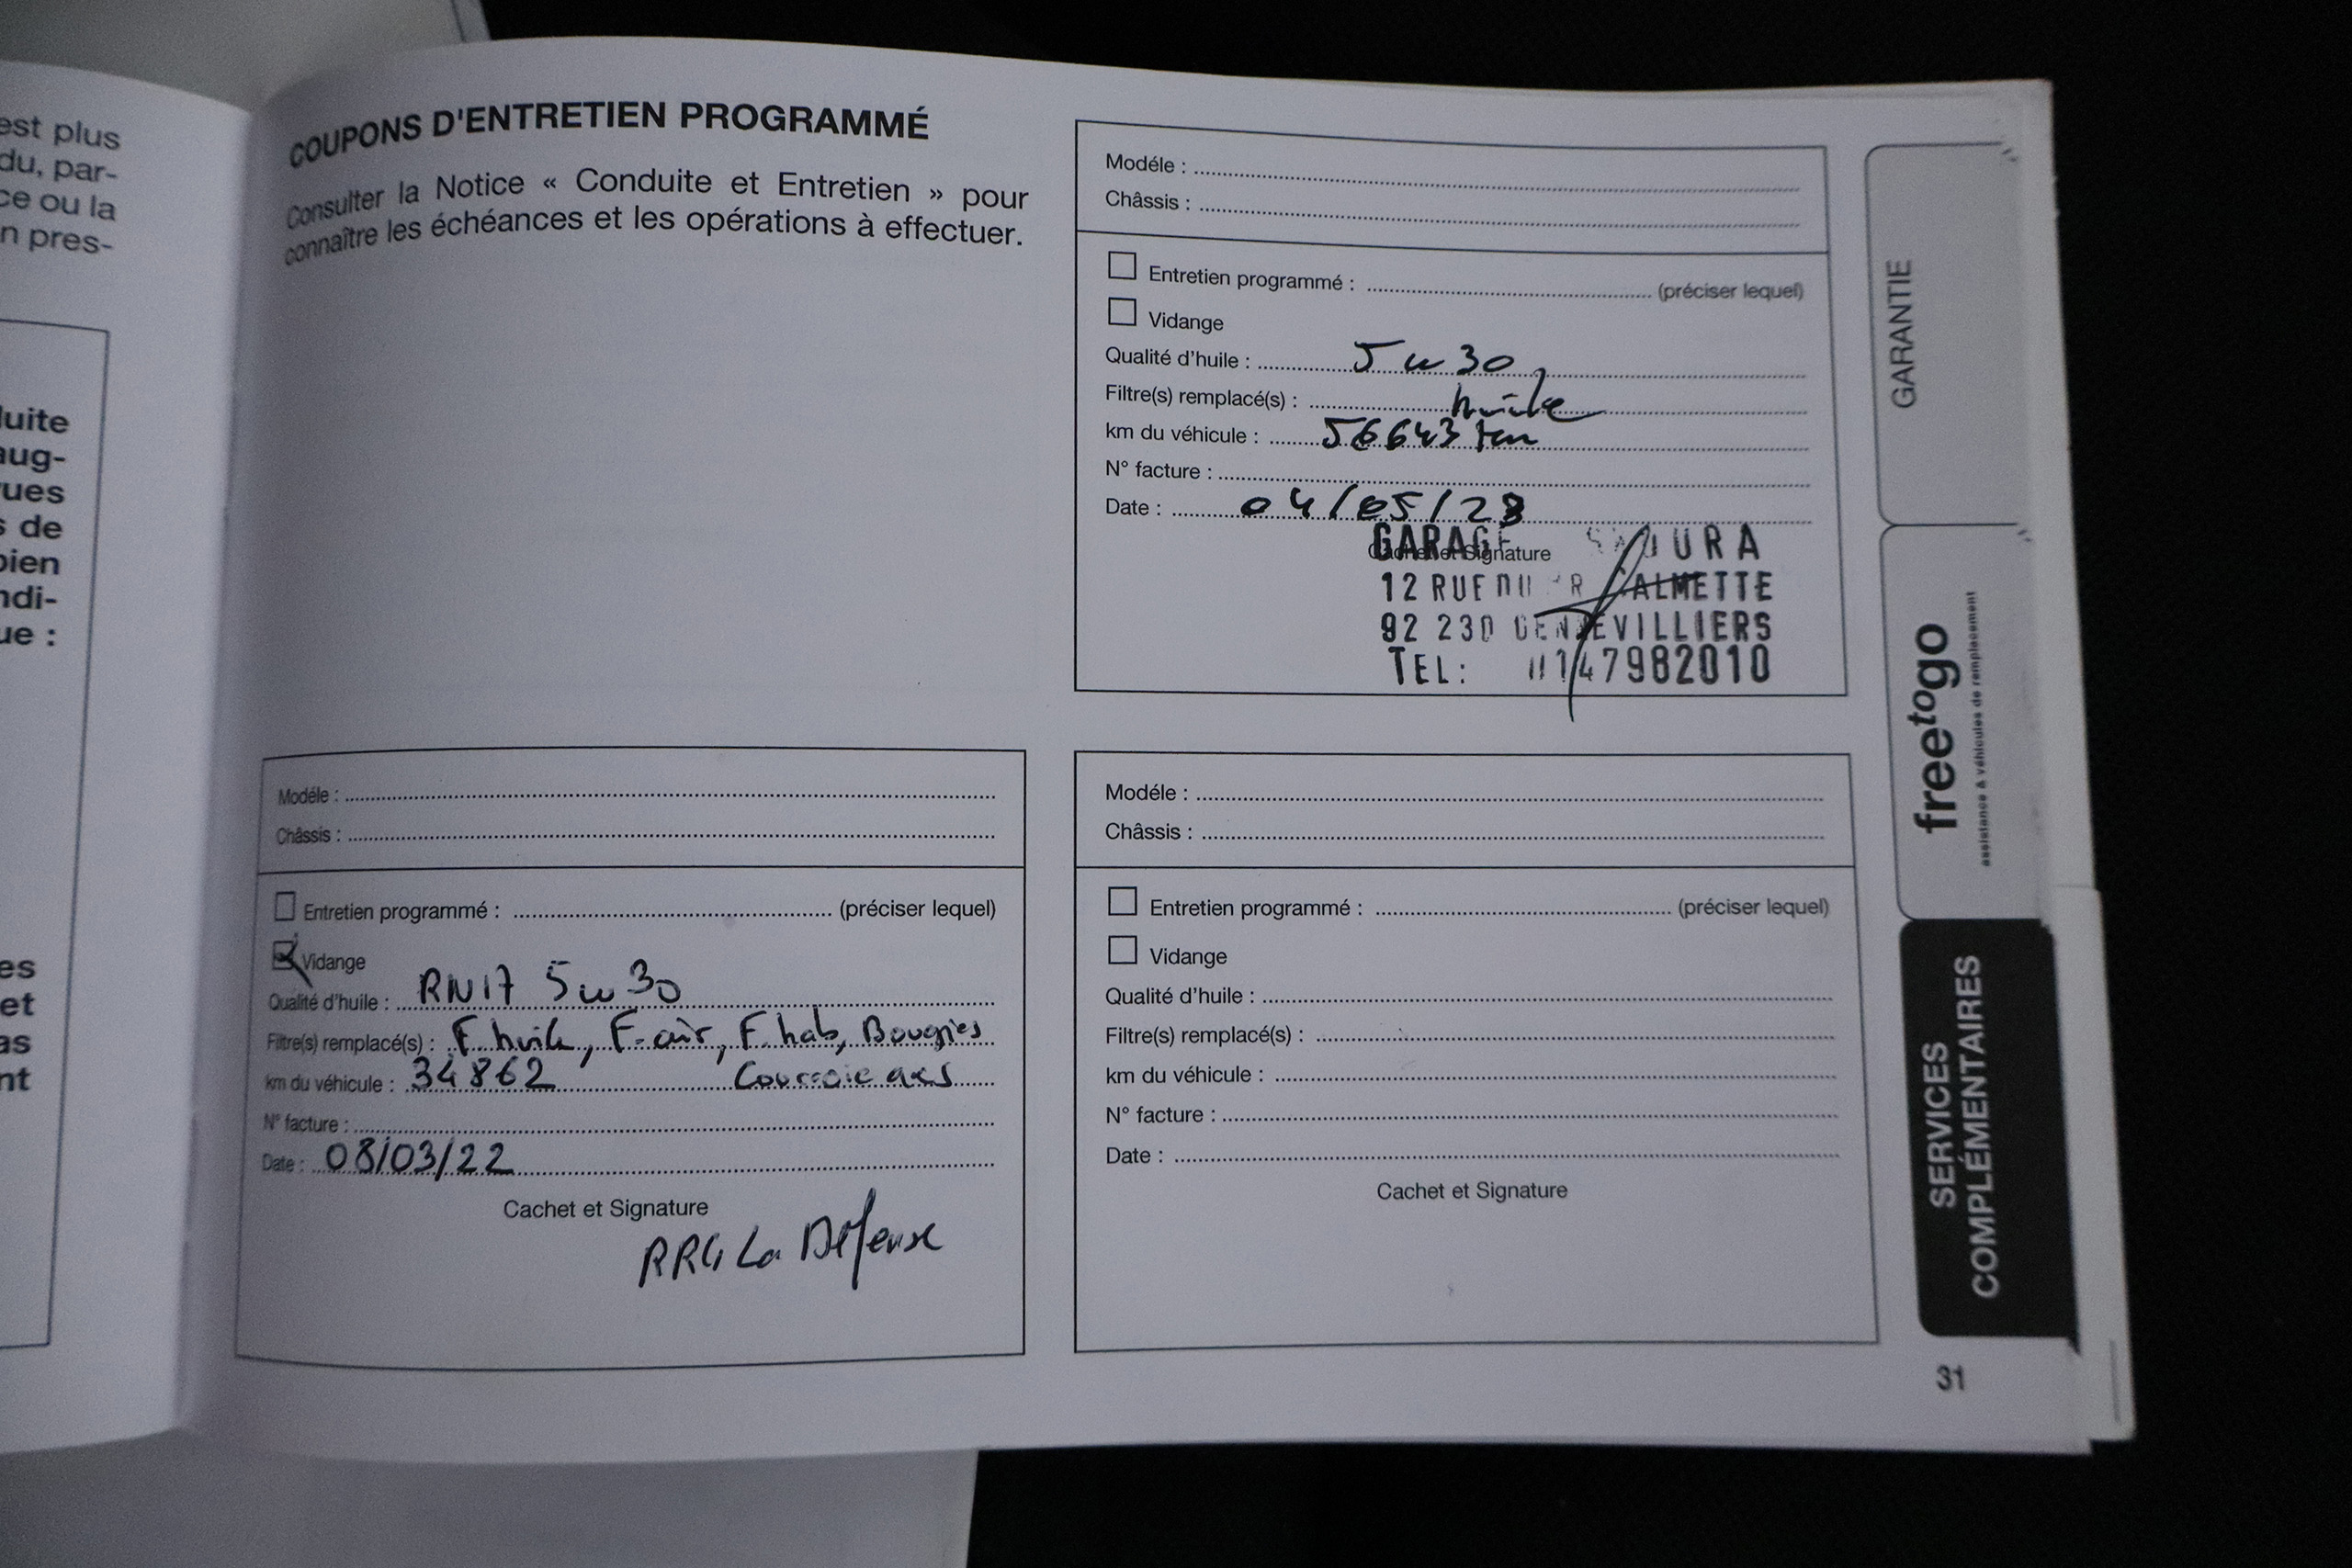 est plus
du, par-
ce ou la
n pres-
luite
aug-
ues
s de
bien
ndi-
ue :
es
et
as
nt
COUPONS D'ENTRETIEN PROGRAMMÉ
Consulter la Notice « Conduite et Entretien » pour
connaître les échéances et les opérations à effectuer.
Modéle :
Châssis :
Entretien programmé : (préciser lequel)
Vidange
Qualité d'huile : RN17 5w30
Filtre(s) remplacé(s) : F.huile, F-air, F.hab, Bougies
km du véhicule : 34862 Courroie acs
N° facture :
Date : 08/03/22
Cachet et Signature
RRG La Défense
Modéle :
Châssis :
Entretien programmé : (préciser lequel)
Vidange
Qualité d'huile : 5w30
Filtre(s) remplacé(s) : huile
km du véhicule : 56643 km
N° facture :
Date : 04/05/23
Cachet et Signature
GARAGE
12 RUE DU CALMETTE
92 230 GENNEVILLIERS
TEL: 0147982010
Modéle :
Châssis :
Entretien programmé : (préciser lequel)
Vidange
Qualité d'huile :
Filtre(s) remplacé(s) :
km du véhicule :
N° facture :
Date :
Cachet et Signature
GARANTIE
freetogo
assistance & véhicules de remplacement
SERVICES
COMPLÉMENTAIRES
31